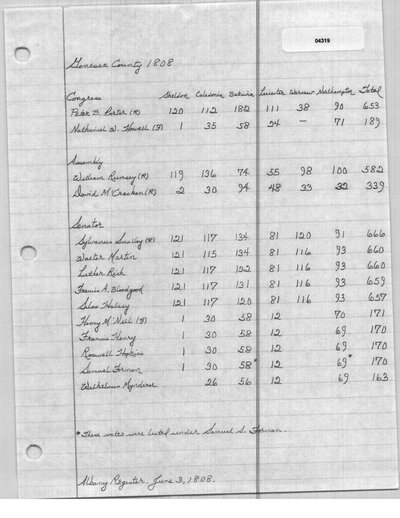 04319
Genesee County 1808
Congress Sheldon Caledonia Batavia Leicester Warsaw Northampton Total
Peter B. Porter (R) 120 112 182 111 38 90 653
Nathaniel W. Howell (F) 1 35 58 24 — 71 189
Assembly
William Rumsey (R) 119 136 74 55 98 100 582
David McCracken (R) 2 30 94 48 33 32 339
Senator
Sylvanus Smalley (R) 121 117 134 81 120 91 666
Walter Martin 121 115 134 81 116 93 660
Luther Rich 121 117 132 81 116 93 660
Francis A. Bloodgood 121 117 131 81 116 93 659
Silas Halsey 121 117 120 81 116 93 657
Henry McNeil (F) 1 30 58 12 70 171
Francis Henry 1 30 58 12 69 170
Roswell Hopkins 1 30 58 12 69 170
Samuel Forman 1 30 58* 12 69* 170
Wilhelmus Mynderse 26 56 12 69 163
* These votes were listed under Samuel S. Forman.
Albany Register. June 3, 1808.